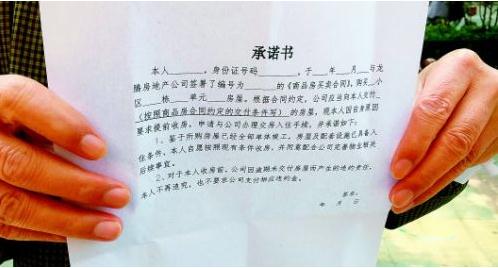 承诺书
本人______，身份证号码______，于___年___月___与龙
腾房地产公司签署了编号为______的《商品房买卖合同》，购买__小
区___栋___单元___房屋。根据合同约定，公司应当向本人交付
（按照商品房合同约定的交付条件写）的房屋，现本人因自身原因
要求提前收房，申请与公司办理交房入住手续，并承诺如下：
1、鉴于所购房屋已经全部单体竣工，房屋及配套设施已具备入
住条件，本人自愿按照现有条件收房，并同意配合公司完善物业相关
后续事宜。
2、对于本人收房前，公司因逾期未交付房屋而产生的违约责任，
本人不再追究，也不要求公司支付相应违约金。
签名：
年 月 日